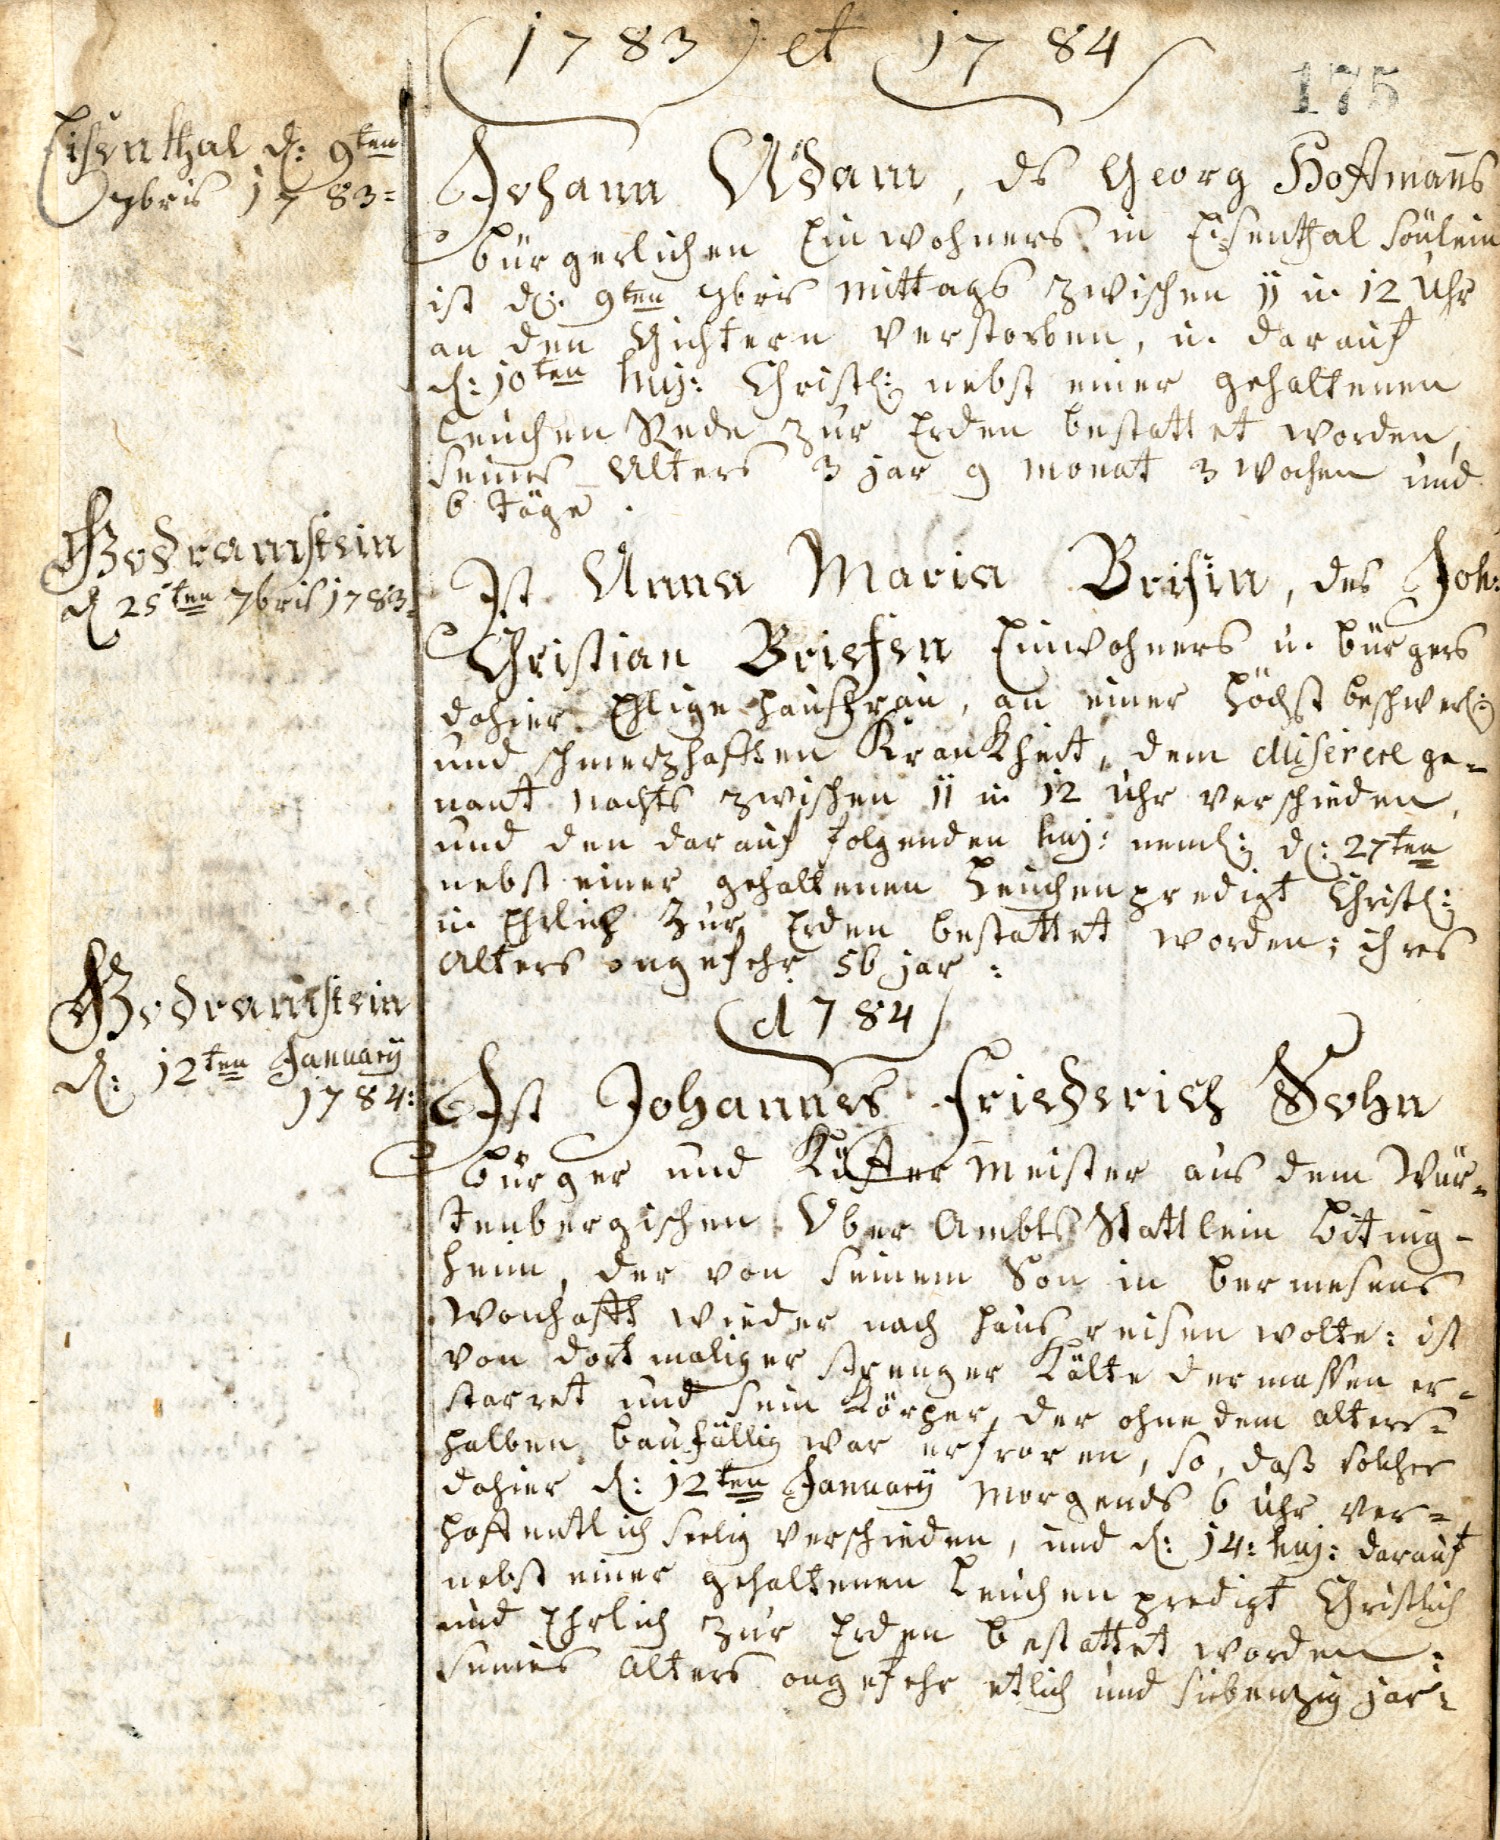 1783 et 1784
175
Eisenthal d: 9ten
7bris 1783=
Johann Adam, ds Georg Hoffmans
bürgerlichen Einwohners in Eisenthal söülein
ist d: 9ten 7bris mittags zwischen 11 u. 12 Uhr
an den Gichtern verstorben, u. darauf
d: 10ten huj: Christl: nebst einer gehaltenen
Leuchen Rede zur Erden bestattet worden,
seines Alters 3 jar 9 monat 3 wochen und
6 täge.
Godramstein
d 25ten 7bris 1783=
Ist Anna Maria Brifin, des Joh:
Christian Briefen Einwohners u. bürgers
dahier Ehlige haussfrau, an einer höchst beschwerl:
und schmerzhafften Krankheit, dem Miserere ge=
nant nachts zwischen 11 u. 12 Uhr verschieden,
und den darauf folgenden huj: neml: d: 27ten
nebst einer gehaltenen Leuchenpredigt Christl:
u. Ehrlich zur Erden bestattet worden; ihres
Alters ongefehr 56 jar:
1784
Godramstein
d: 12ten January
1784:
Ist Johannes Friederich Sohn
bürger und Küffer meister aus dem Wür=
tenbergischen Ober Ambts Stattlein Biting-
heim, der von seinem Son in bermesens
wonhafft wieder nach haus reisen wolte: ist
von dortmaliger strenger Kälte dermassen er=
starret und sein Körper, der ohne dem alters=
halben baufällig war erfroren, so, daß solcher
dahier d: 12ten January Morgends 6 Uhr ver=
hoffentlich seelig verschieden, und d: 14: huj: darauf
nebst einer gehaltenen Leuchenpredigt Christlich
und Ehrlich zur Erden bestattet worden:
seines Alters ongefehr etlich und siebenzig jar: